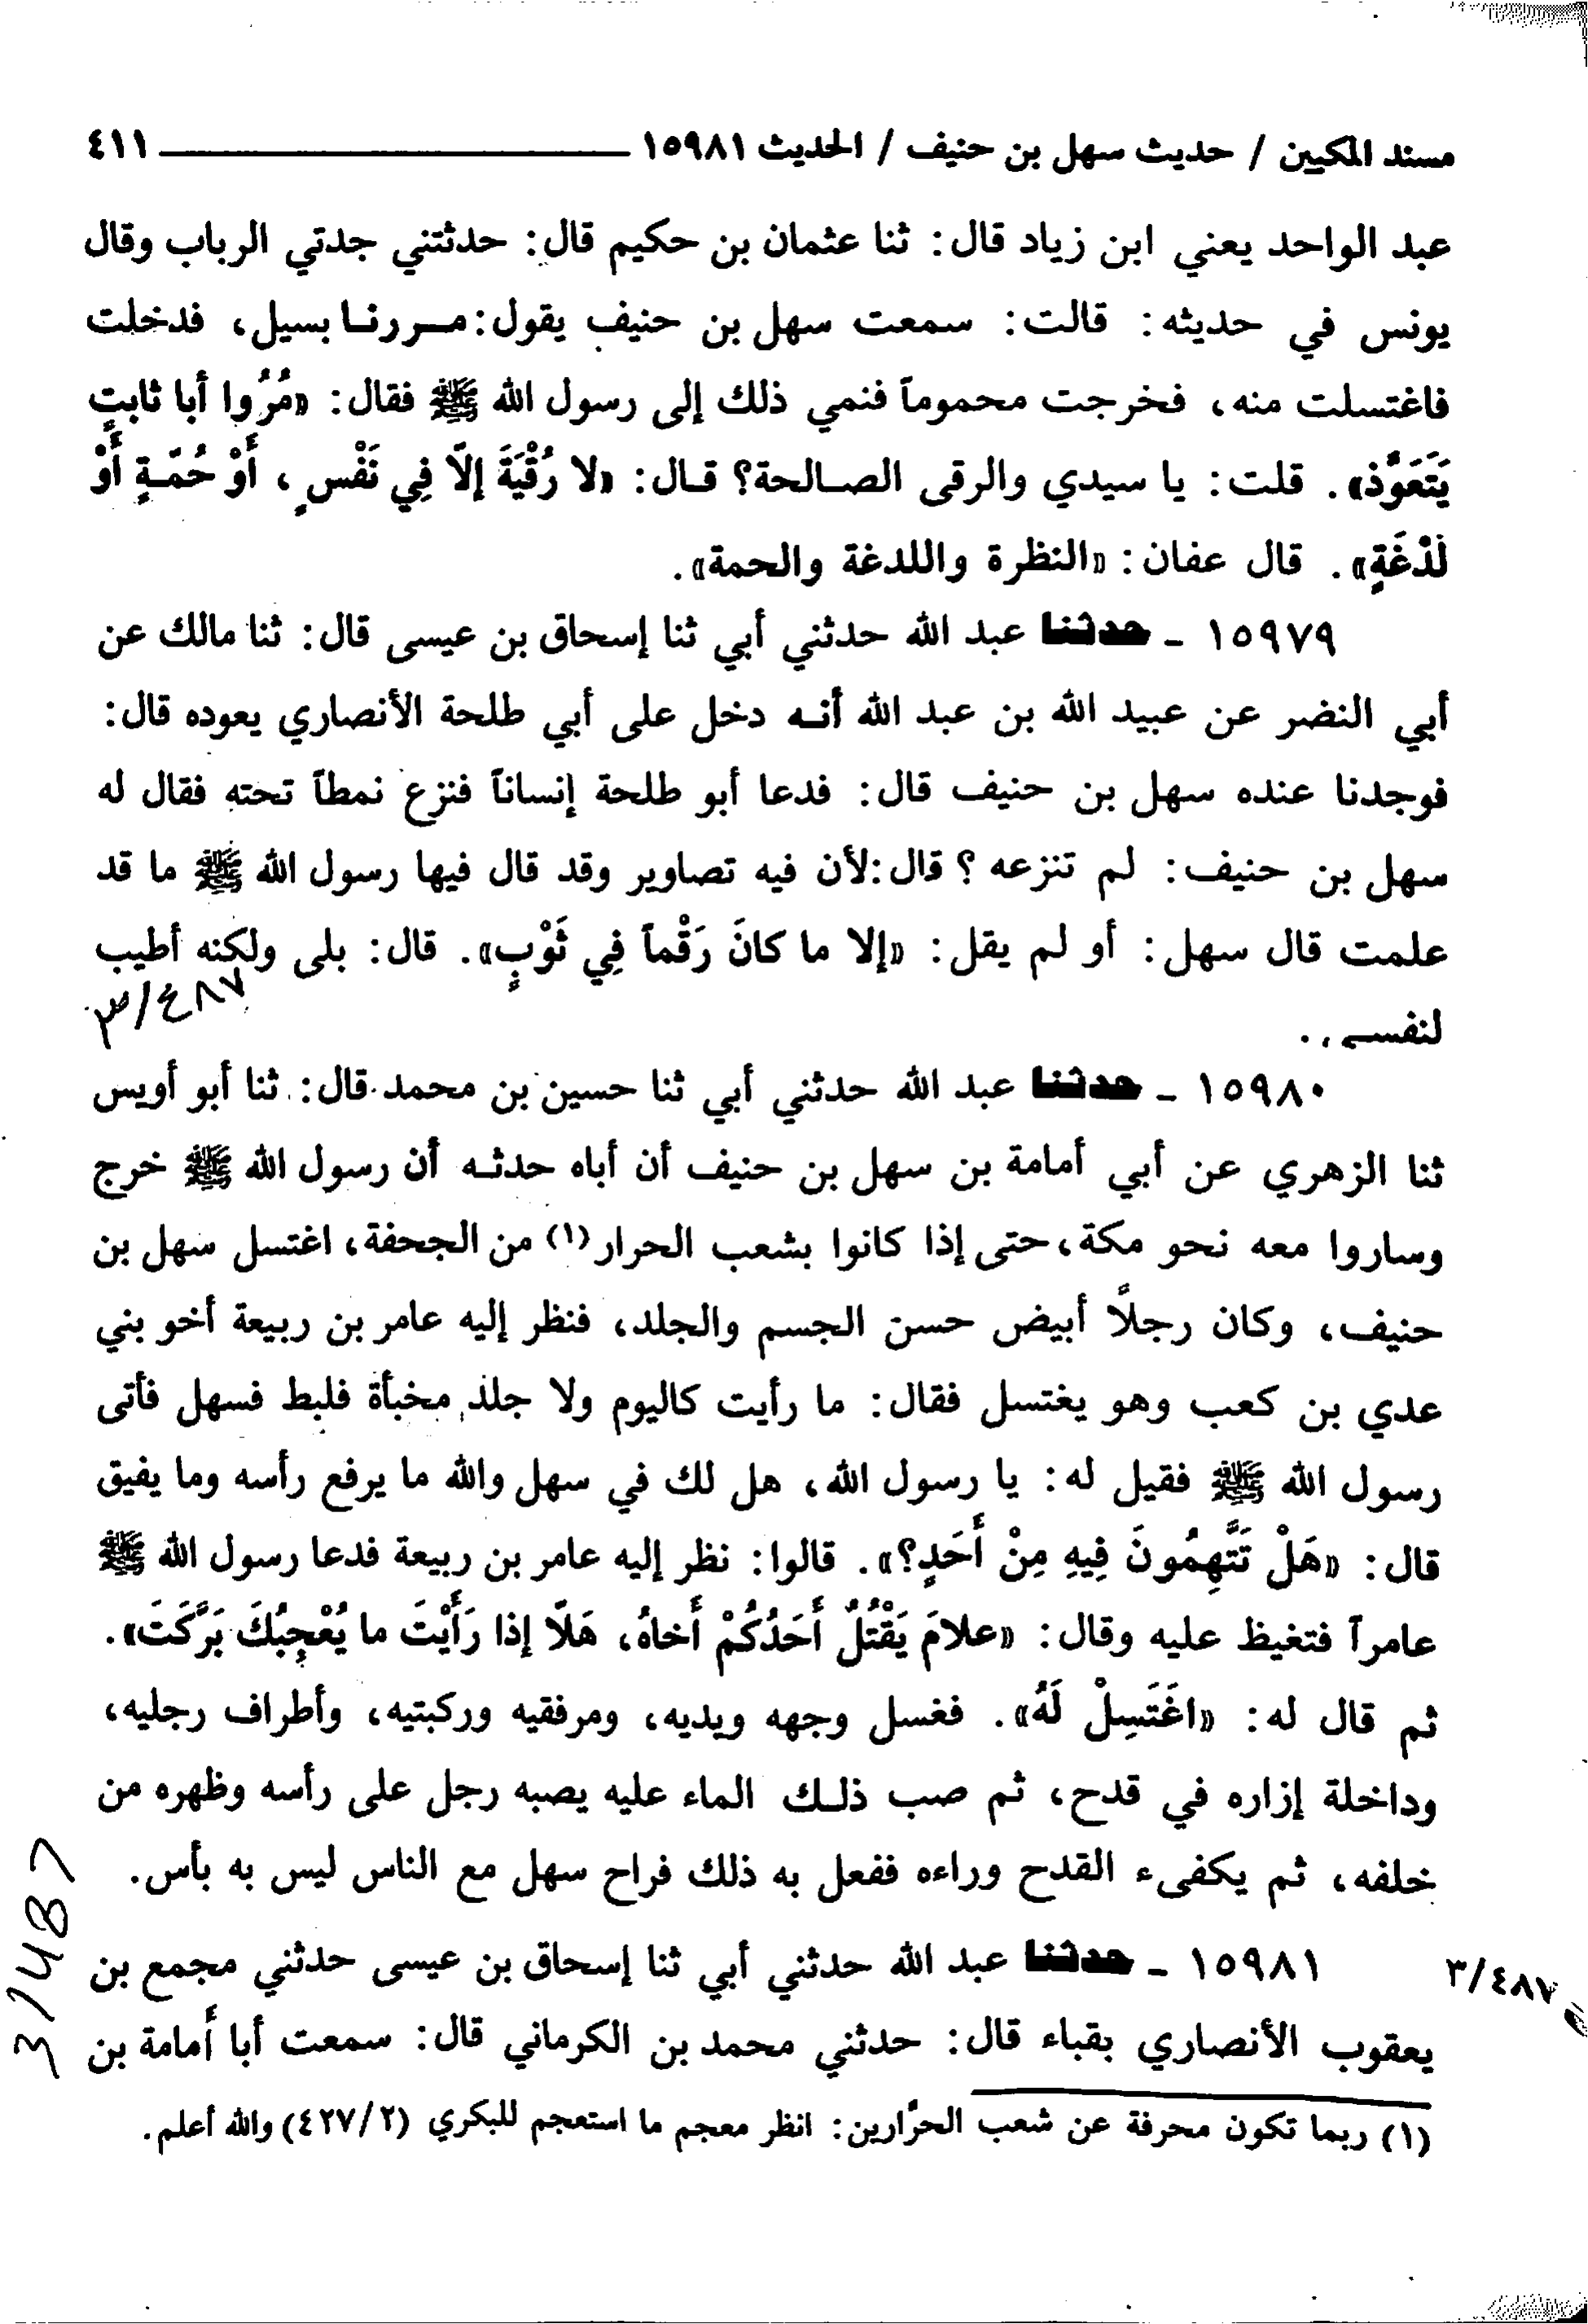 مسند المكيين / حديث سهل بن حنيف / الحديث ١٥٩٨١ ــــــــ ٤١١
عبد الواحد يعني ابن زياد قال: ثنا عثمان بن حكيم قال: حدثتني جدتي الرباب وقال
يونس في حديثه: قالت: سمعت سهل بن حنيف يقول: مـررنـا بسيل، فدخلت
فاغتسلت منه، فخرجت محموماً فنمي ذلك إلى رسول الله ﷺ فقال: «مُرُوا أبا ثابتٍ
يَتَعَوَّذ». قلت: يا سيدي والرقى الصـالحة؟ قـال: «لا رُقْيَةَ إلّا فِي نَفْسٍ، أَوْ حُمَّـةٍ أَوْ
لَدْغَةٍ». قال عفان: «النظرة واللدغة والحمة».
١٥٩٧٩ - حدثنا عبد الله حدثني أبي ثنا إسحاق بن عيسى قال: ثنا مالك عن
أبي النضر عن عبيد الله بن عبد الله أنـه دخل على أبي طلحة الأنصاري يعوده قال:
فوجدنا عنده سهل بن حنيف قال: فدعا أبو طلحة إنساناً فنزع نمطاً تحته فقال له
سهل بن حنيف: لم تنزعه؟ قال: لأن فيه تصاوير وقد قال فيها رسول الله ﷺ ما قد
علمت قال سهل: أو لم يقل: «إلا ما كانَ رَقْماً فِي ثَوْبٍ». قال: بلى ولكنه أطيب
٣/٤٨٧
لنفسي.
١٥٩٨٠ - حدثنا عبد الله حدثني أبي ثنا حسين بن محمد قال: ثنا أبو أويس
ثنا الزهري عن أبي أمامة بن سهل بن حنيف أن أباه حدثـه أن رسول الله ﷺ خرج
وساروا معه نحو مكة، حتى إذا كانوا بشعب الحرار(١) من الجحفة، اغتسل سهل بن
حنيف، وكان رجلاً أبيض حسن الجسم والجلد، فنظر إليه عامر بن ربيعة أخو بني
عدي بن كعب وهو يغتسل فقال: ما رأيت كاليوم ولا جلد مخبأة فلبط فسهل فأتى
رسول الله ﷺ فقيل له: يا رسول الله، هل لك في سهل والله ما يرفع رأسه وما يفيق
قال: «هَلْ تَتَّهِمُونَ فِيهِ مِنْ أَحَدٍ؟». قالوا: نظر إليه عامر بن ربيعة فدعا رسول الله ﷺ
عامراً فتغيظ عليه وقال: «علامَ يَقْتُلُ أَحَدُكُمْ أَخاهُ، هَلّا إذا رَأَيْتَ ما يُعْجِبُكَ بَرَّكَتَ».
ثم قال له: «اغْتَسِلْ لَهُ». فغسل وجهه ويديه، ومرفقيه وركبتيه، وأطراف رجليه،
وداخلة إزاره في قدح، ثم صب ذلـك الماء عليه يصبه رجل على رأسه وظهره من
خلفه، ثم يكفىء القدح وراءه ففعل به ذلك فراح سهل مع الناس ليس به بأس.
3/487
١٥٩٨١ - حدثنا عبد الله حدثني أبي ثنا إسحاق بن عيسى حدثني مجمع بن
٣/٤٨٧
يعقوب الأنصاري بقباء قال: حدثني محمد بن الكرماني قال: سمعت أبا أُمامة بن
(١) ربما تكون محرفة عن شعب الحرَّارين: انظر معجم ما استعجم للبكري (٤٢٧/٢) والله أعلم.